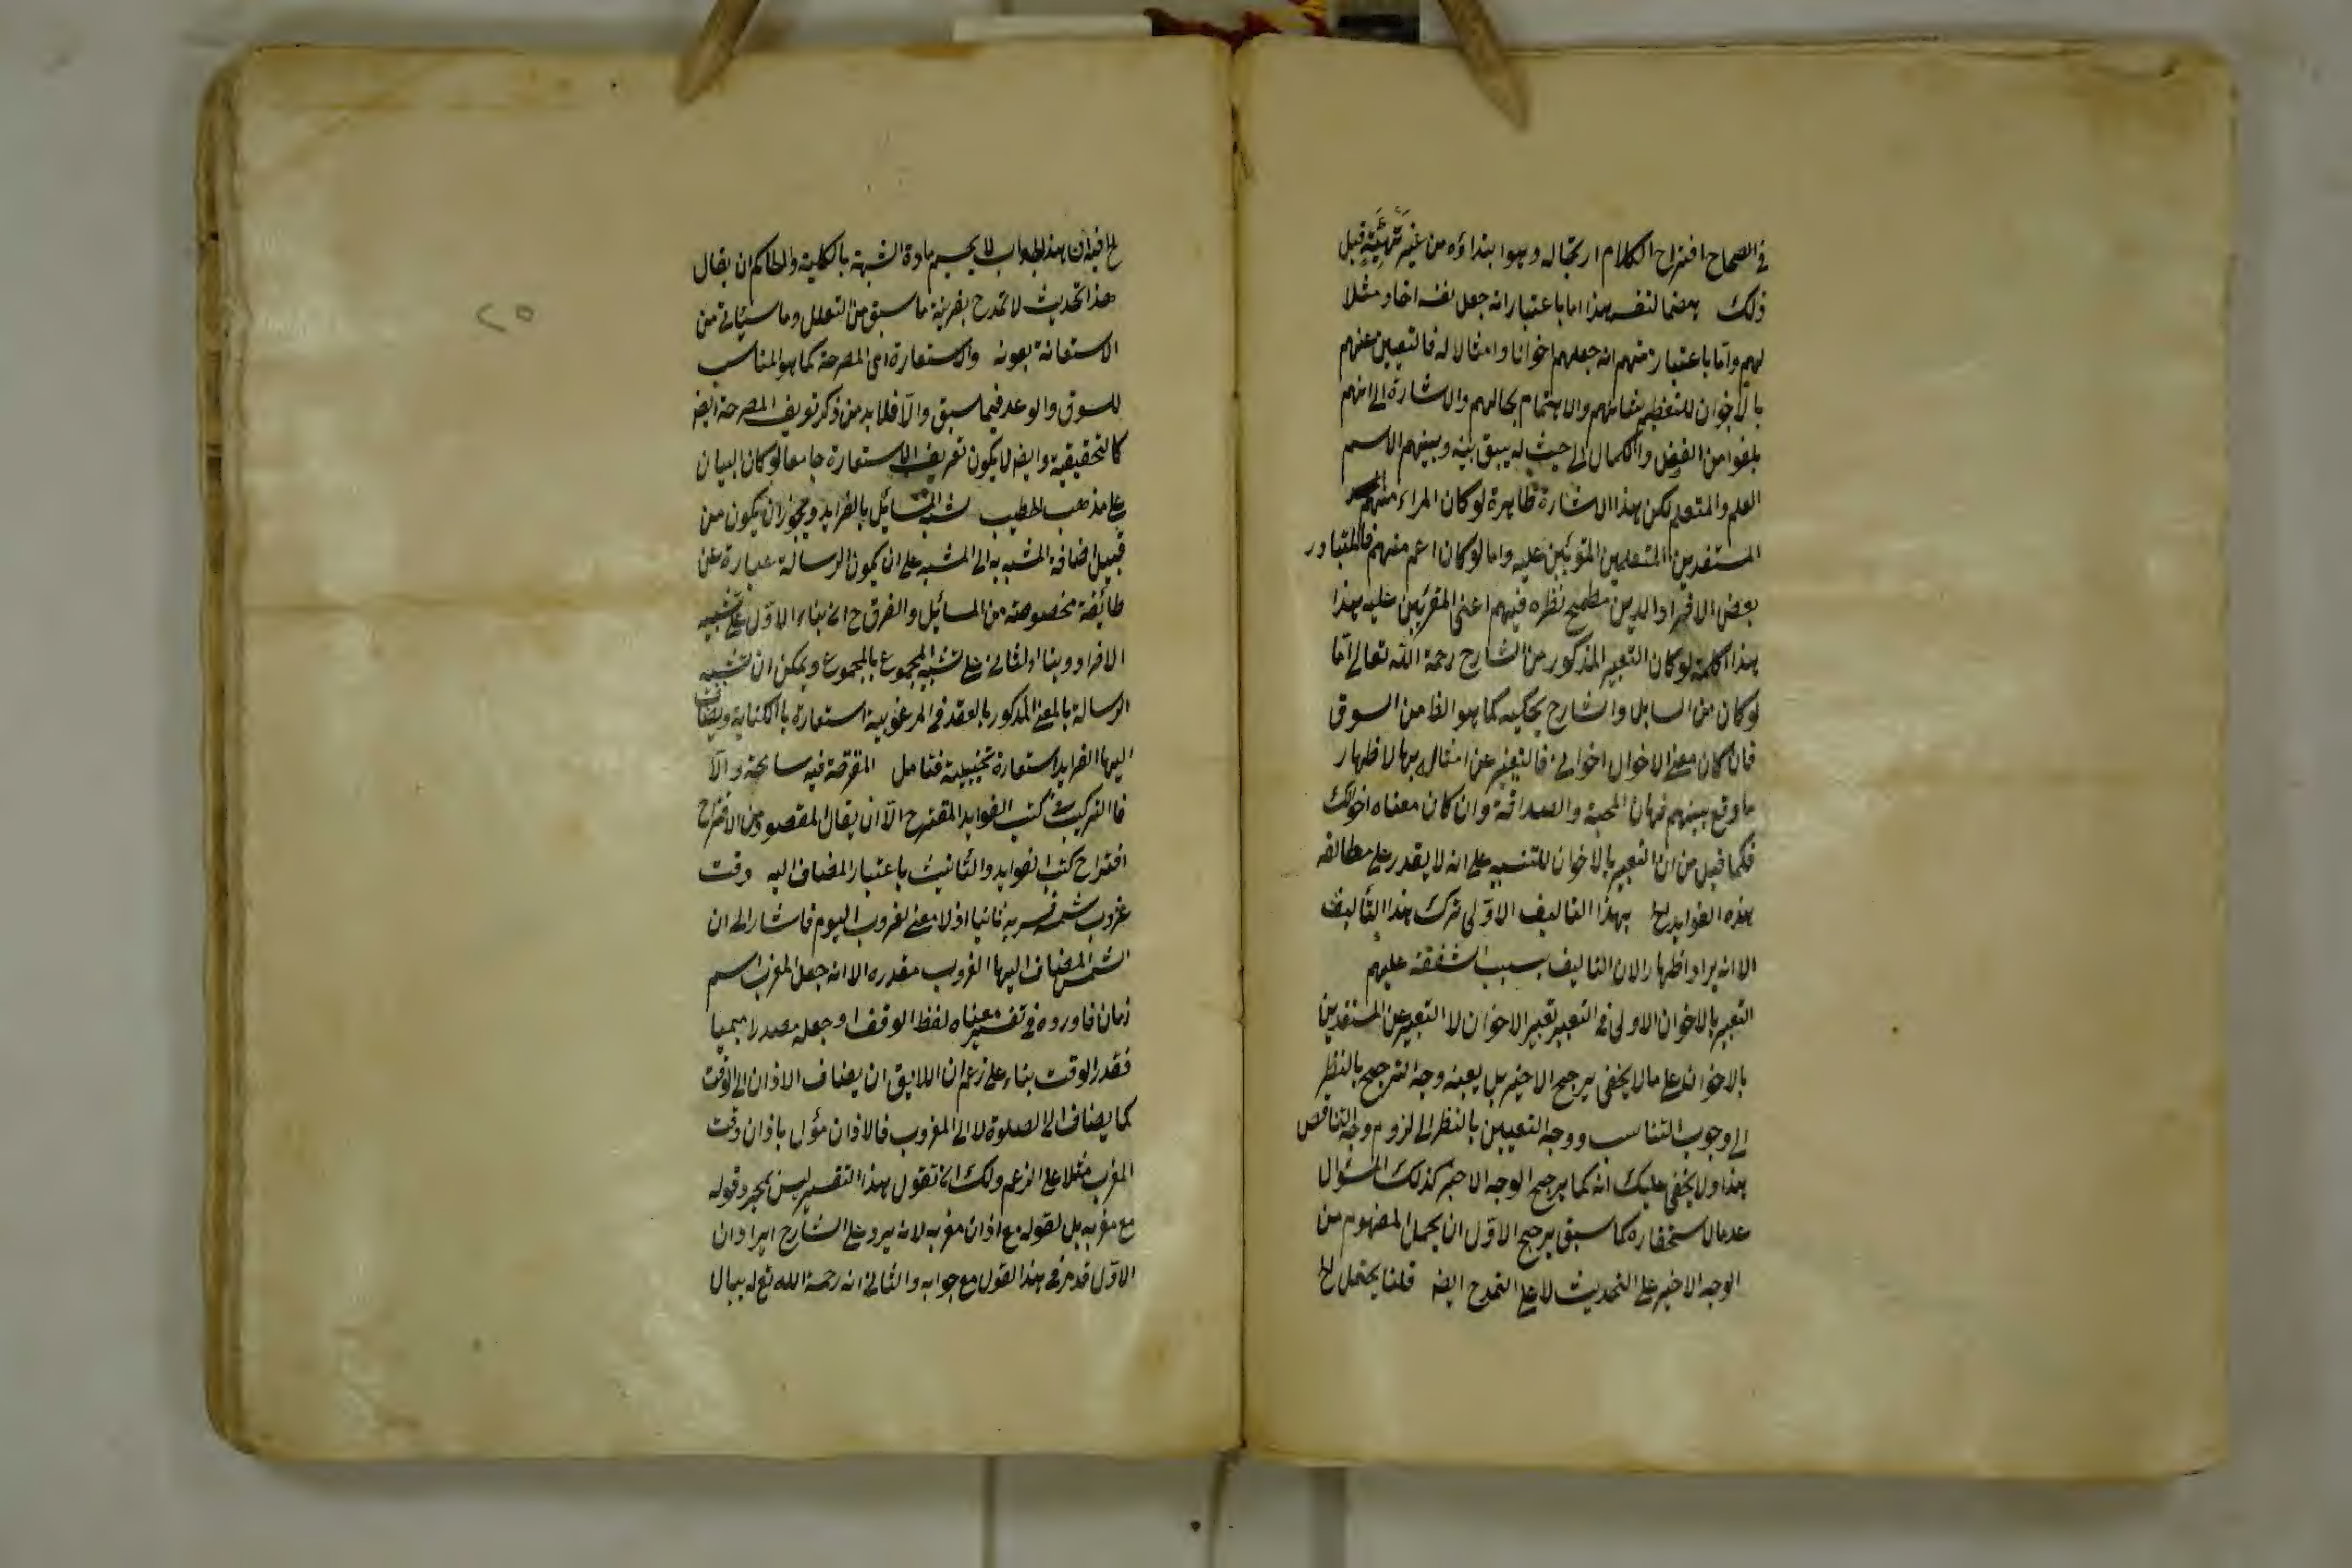 في الصحاح اقتراح الكلام ارتجاله وهو ابتداؤه من غير تهيئة قبل
ذلك بعضا لنفر هذا اما باعتبار انه جعل نفسه اخا ومثلا
لهم واما باعتبار منهم انه جعلهم اخوانا وامثالا له فالتعبير عنهم
بالاخوان للتعظيم بشانهم والاهتمام بحالهم والاشارة الى انهم
بلغوا من الفضل والكمال الى حيث لم يبق بينه وبينهم الا اسم
العلم والمتعلم لكن هذا الاشارة ظاهرة لو كان المراد منهم
المستفدين المتعلمين عليه واما لو كان اعم منهم فالمتبادر
بعض الافراد الذين مطمح نظره فيهم اعنى المقربين عليه هذا
هذا كله لو كان التعبير المذكور من الشارح رحمة الله تعالى اما
لو كان من السايل والشارح يحكيه كما هو الظ من السوق
فان كان معنى الاخوان اخوانى فالتعبير عن امثال بها لاظهار
ما وقع بينهم من المحبة والصداقة وان كان معناه اخوانك
فكما قيل من ان التعبير بالاخوان للتنبيه على انه لا يقدر على مطالعه
هذه الفوايد الخ بهذا التاليف الاولى ترك هذا التاليف
الا انه يراد اظهار ان التاليف بسبب الشفقة عليهم
التعبير بالاخوان الاولى في التعبير تعبير الاخوان لا التعبير عن المستفدين
بالاخوان على ما لا يخفى يرجح الاخير بل يعينه وجه الترجيح بالنظر
الى وجوب التناسب ووجه التعيين بالنظر الى لزوم وجه التناقص
هذا ولا يخفى عليك انه كما يرجح الوجه الاخير كذلك السؤال
عد مالاستحقاره كما سبق يرجح الاول ان يحمل المفهوم من
الوجه الاخير على التحديث لا على التمدح ايضه قلنا يحتمل الخ
الخ فيه ان هذا الجواب لا يحسم مادة الشبهة بالكلية والحاكم ان يقال
هذا تحديث لا تمدح بقرينة ما سبق من التعلل وما سيأتى من
الاستعانة بعونه والاستعارة اى المصرحة كما هو المناسب
للسوق والوعد فيما سبق والا فلا بد من ذكر تعريف المصرحة ايضه
كالتحقيقية وايضه لا يكون تعريف الاستعارة جامعا لو كان البيان
على مذهب الخطيب شبه المسائل بالفرايد ويجوز ان يكون من
قبيل اضافة المشبه به الى المشبه على ان يكون الرسالة عبارة عن
طائفة مخصوصة من المسائل والفرق ح ان بناء الاول على تشبيه
الافراد وبناء الثانى على تشبيه المجموع بالمجموع ويمكن ان تشبيه
الرسالة بالمعنى المذكور بالعقد في المرغوبية استعارة بالكناية ويضاف
اليها الفرايد استعارة تخييلية فتامل المقترحة فيه سامحة والا
فالتركيب كتب الفوايد المقترح الا ان يقال المقصود من الاقتراح
اقتراح كتب الفوايد والتانيث باعتبار المضاف اليه وقت
غروب شمسه فسر به ثانيا اذ لا معنى لغروب اليوم فاشار الى ان
الشمس المضاف اليها الغروب مقدره الا انه جعل المغرب اسم
زمان فاورده في تفسير معناه لفظ الوقت او جعله مصدرا ميميا
فقدر الوقت بناء على زعم ان اللايق ان يضاف الاذان الى الوقت
كما يضاف الى الصلوة لا الى المغروب فالاذان مؤل باذان وقت
المغرب مثلا على الزعم ولك ان تقول هذا التفسير ليس لمجرد قوله
مع مغربه بل لقوله مع اذان مغربه لانه يرد على الشارح ايراد ان
الاول قد مر في هذا القول مع جوابه والثانى انه رحمة الله تع له ببال
٢٥